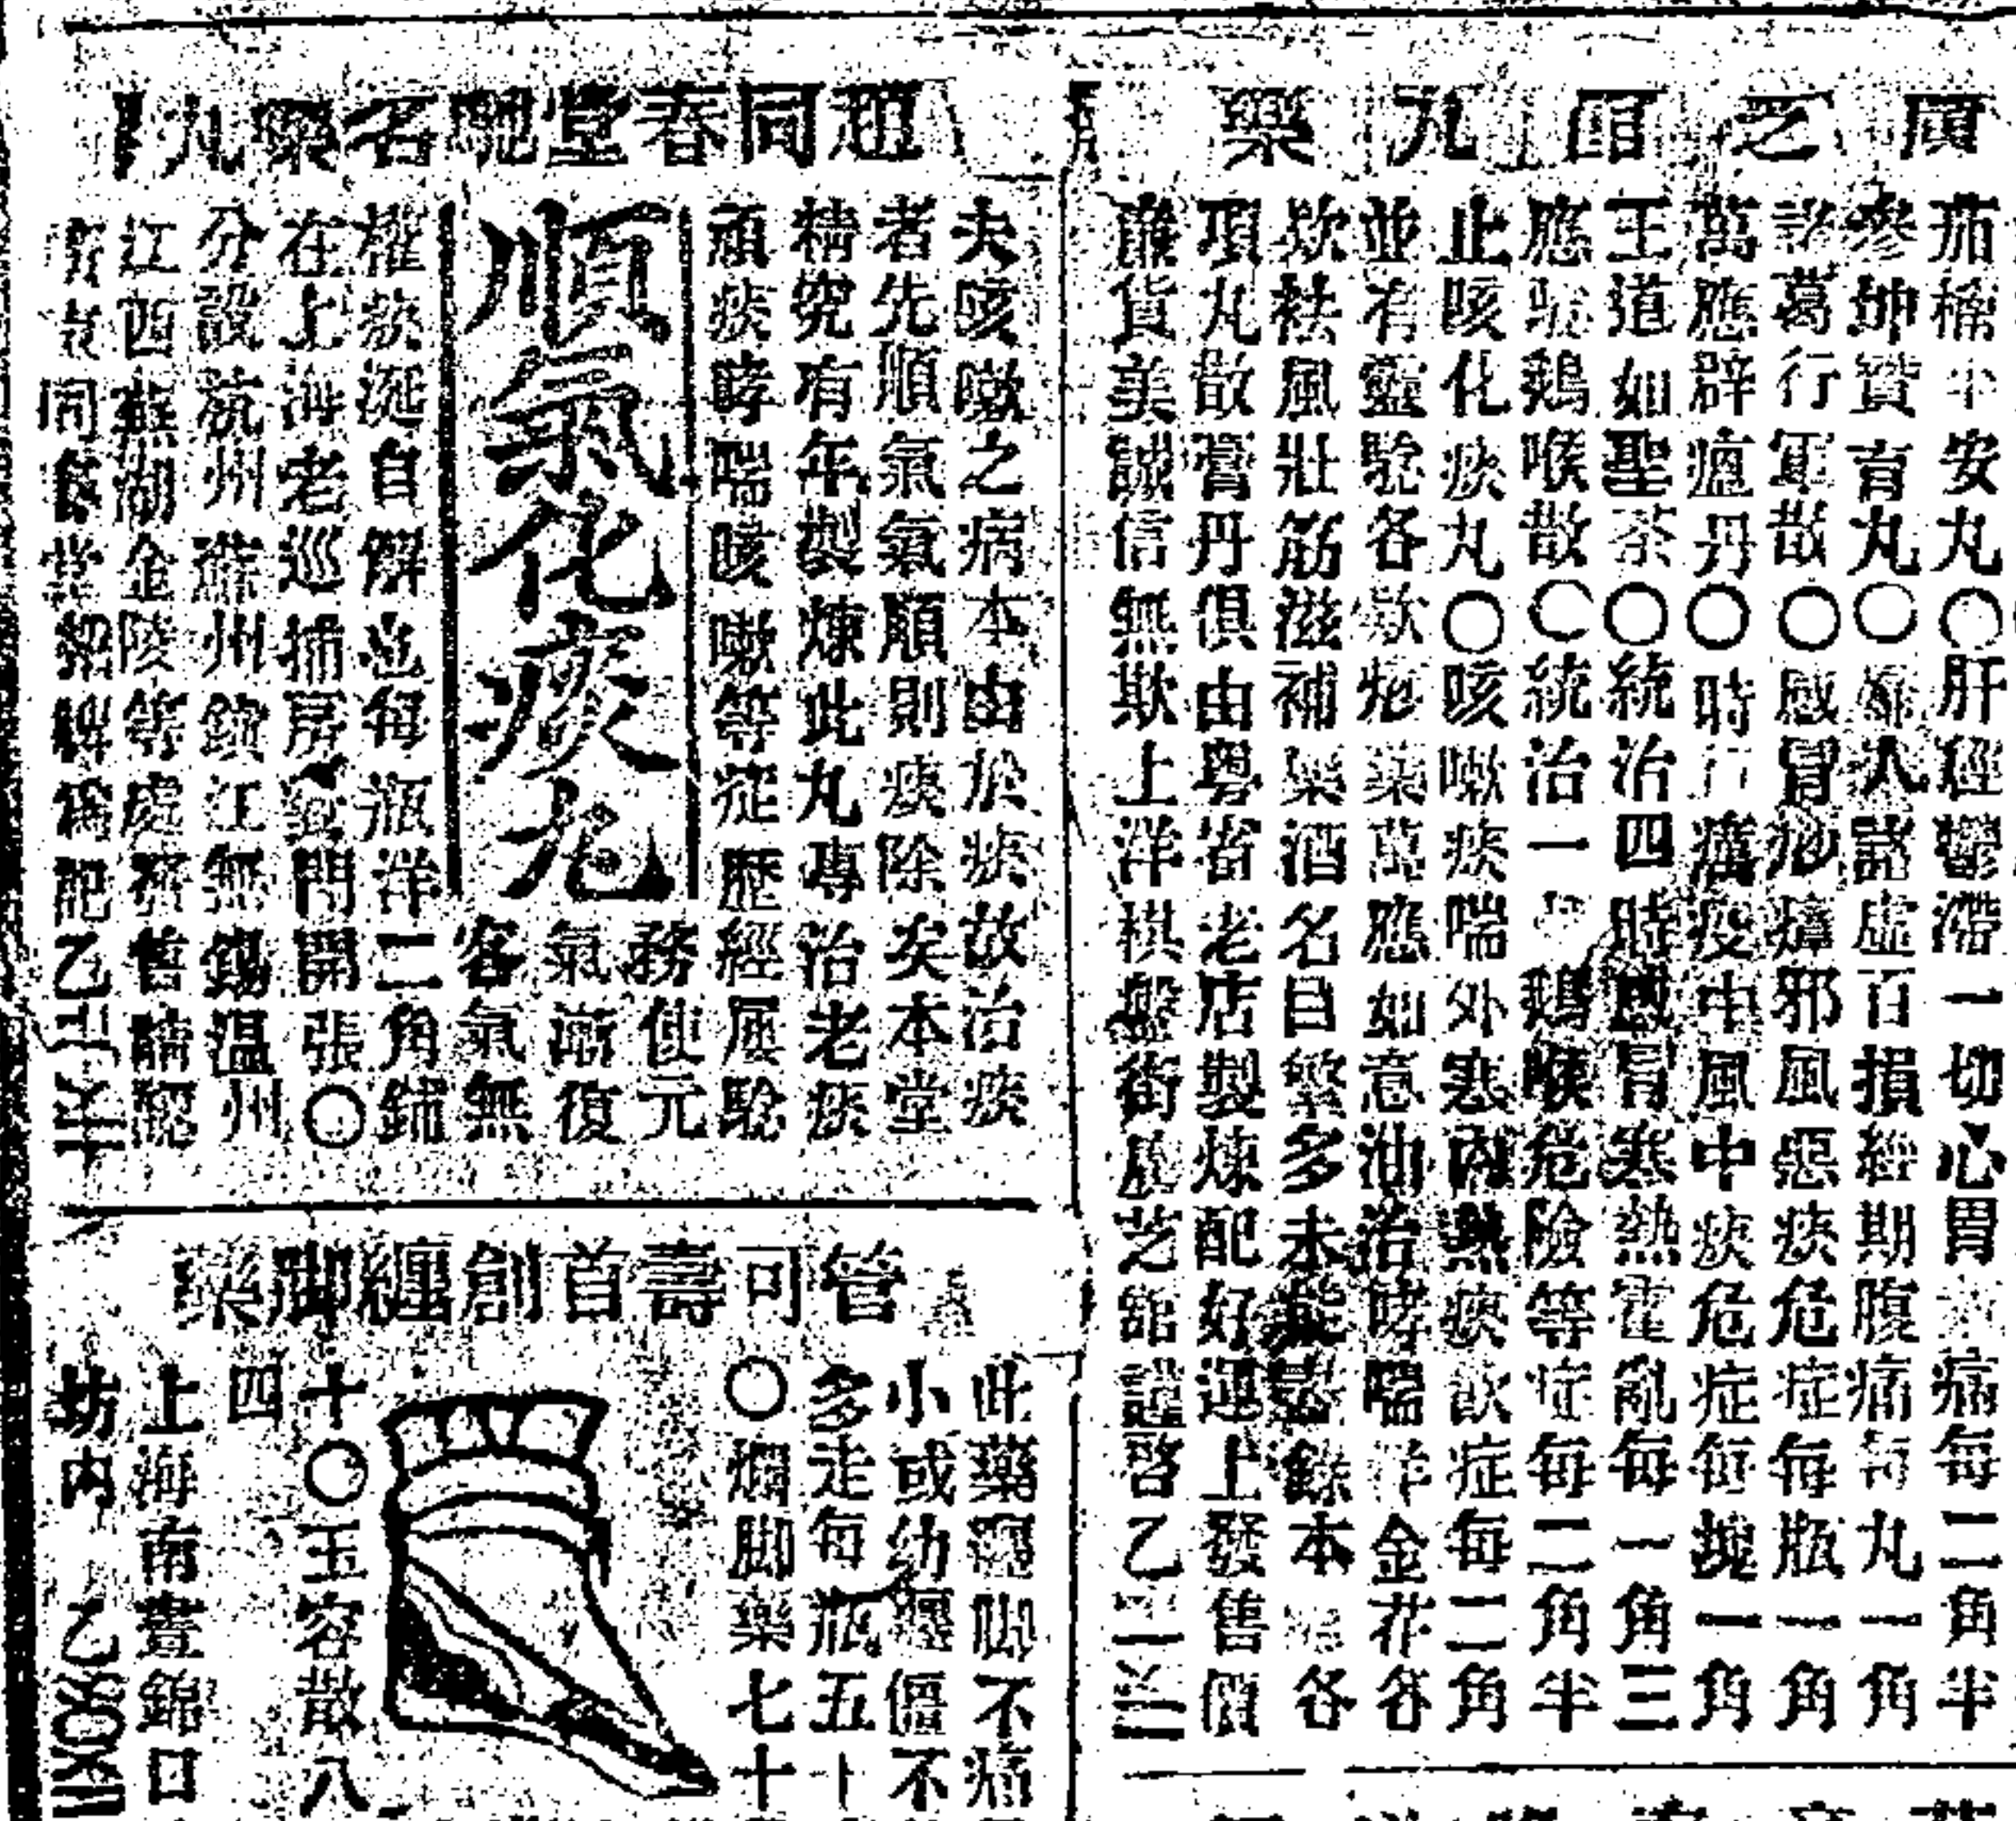 廣芝館丸藥
茄楠半安丸〇肝經鬱滯一切心胃痛每二角半
參坤贊育丸〇婦人諸虛百損經期腹痛每丸一角
諸葛行軍散〇感冒痧瘴邪風惡痰危症每瓶一角
萬應辟瘟丹〇時行癘疫中風中痰危症每塊一角
王道如聖茶〇統治四時感冒寒熱霍亂每一角三
應驗鵝喉散〇統治一鵝喉危險等症每二角半
止咳化痰丸〇咳嗽痰喘外寒內熱痰飲症每二角
並有靈驗各欵炮藥萬應如意油治哮喘洋金花各
欵祛風壯筋滋補藥酒名目繁多未能悉錄本各
項丸散膏丹俱由粵省老店製煉配好運上發售價
廉貨美誠信無欺上洋棋盤街廣芝館謹啓乙
趙同春堂號名藥丸
夫咳嗽之病本由於痰故治痰
者先順氣氣順則痰除矣本堂
精究有年製煉此丸專治老痰
頑痰哮喘咳嗽等症歷經屢驗
順氣化痰丸
務使元
氣漸復
客氣無
權痰涎自解也每瓶洋二角鋪
在上海老巡捕房對門開張〇
分設杭州蘇州鎮江無錫温州
江西蕪湖金陵等處發售請認
同春堂招牌為記乙
管可壽首創纏脚藥
此藥纏脚不痛
小或幼纏僵不
多走每瓶五十
〇爛脚藥七十
十〇玉容散八
四
上海南晝錦口
坊内乙